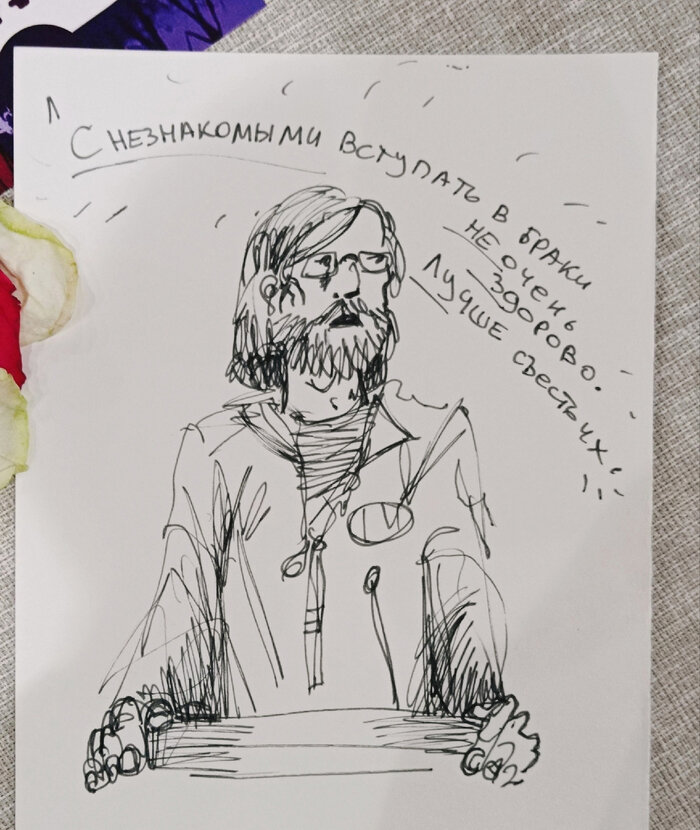 С НЕЗНАКОМЫМИ ВСТУПАТЬ В БРАКИ
НЕ ОЧЕНЬ
ЗДОРОВО.
ЛУЧШЕ СЪЕСТЬ ИХ